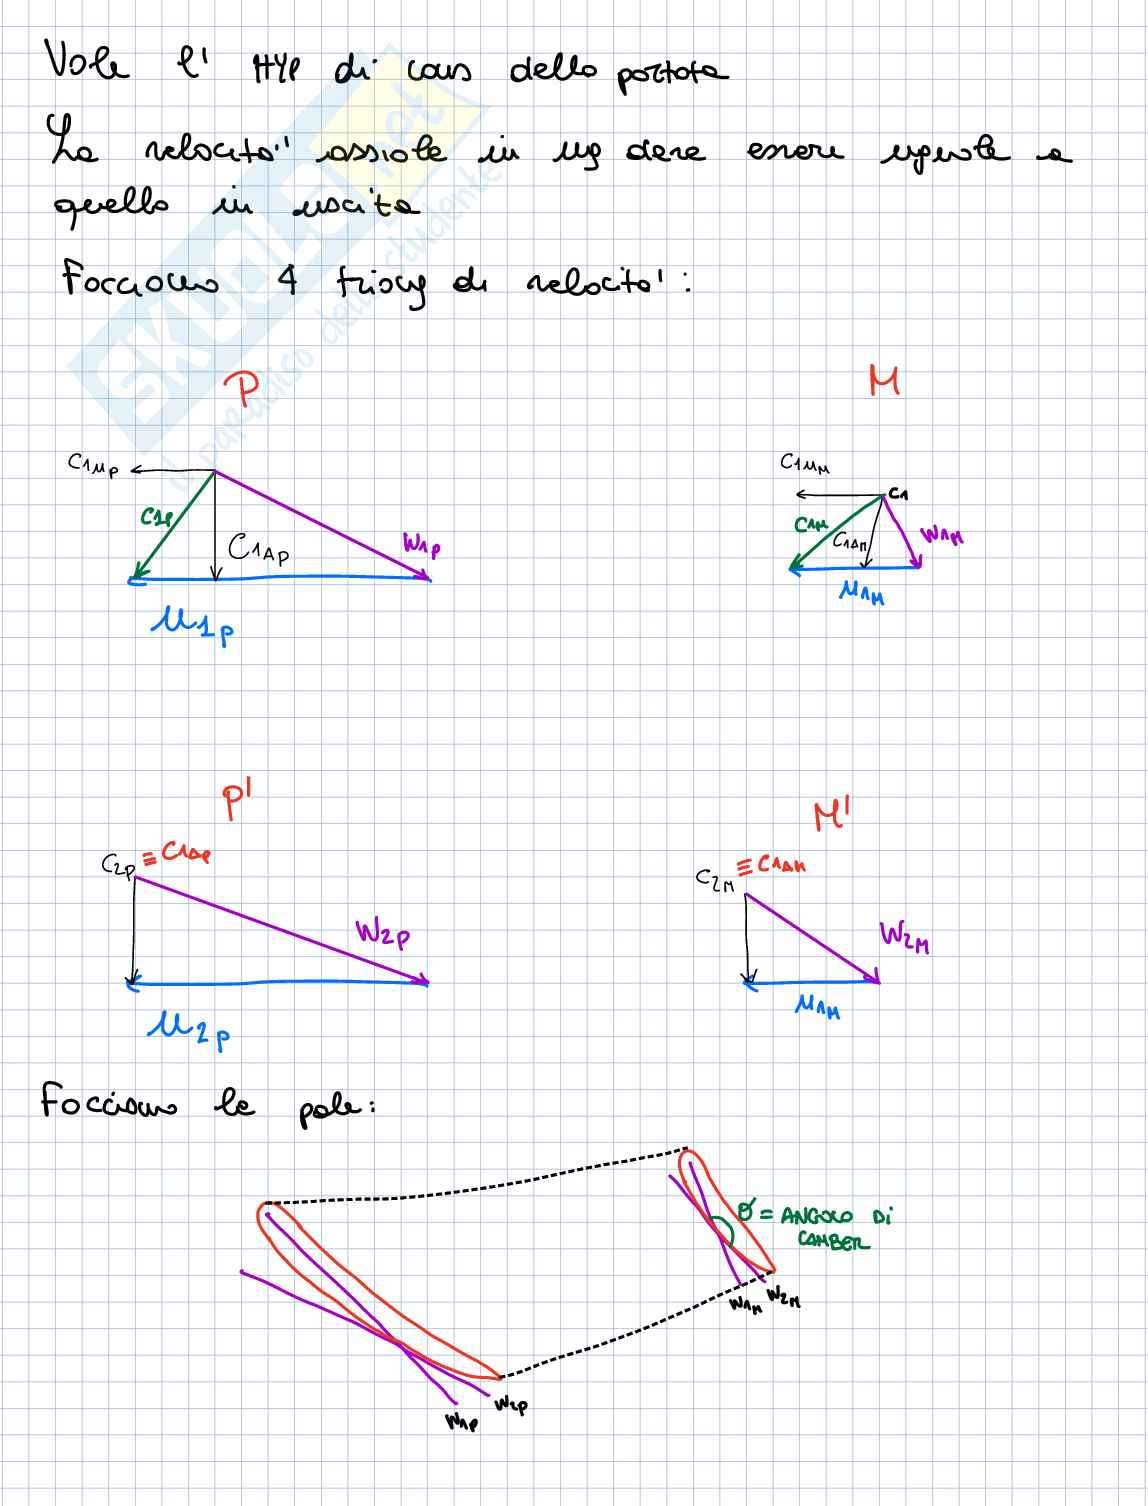 Vale l' HYP di cons della portata
La velocita' assiale in ing deve essere uguale a
quella in uscita
Facciamo 4 triang di velocita':
P
M
C1uP
C1P
C1AP
W1P
u1P
C1uM
C1
C1M
C1AM
W1M
u1M
P'
M'
C2P ≡ C1AP
W2P
u2P
C2M ≡ C1AM
W2M
u1M
Facciamo le pale:
θ = ANGOLO DI
CAMBER
W1M W2M
W1P W2P
SKUOLA.net
il paradiso dello studente